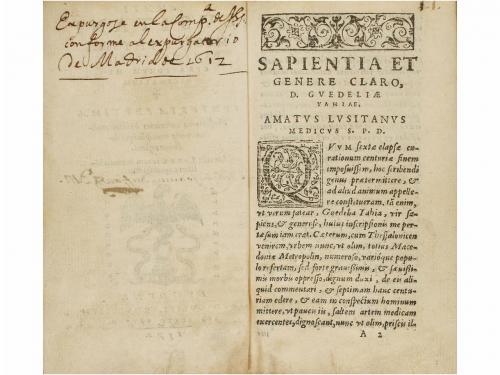 Expurgose en la Comp.ª de Jhs
conforme al expurgatorio
de Madrid de 1612
SAPIENTIA ET
GENERE CLARO,
D. GVEDELIÆ
YAHIAE,
AMATVS LVSITANVS
MEDICVS S. P. D.
QVVM sextæ elapsæ cu-
rationum centuriæ finem
imposuissem, hoc scribendi
genus prætermittere, &
ad aliud animum appelle-
re constitueram, tã enim,
vt verum fatear, Goedelia Yahia, vir sa-
piens, & generose, huius inscriptionis me per-
tæsum iam erat. Cæterum, cum Thessalonicen
venirem, vrbem nunc, vt olim, totius Mace-
doniæ Metropolin, numeroso, varióque popu-
lo refertam, sed forte grauissimis, & sæuissi-
mis morbis oppresso, dignum duxi, de eis ali-
quid commentari, & septimam hanc centu-
riam edere, & eam in conspectum hominum
mittere, vt pauci iis, saltem artem medicam
exercentes, dignoscant, nunc vt olim, priscis il-
A 2